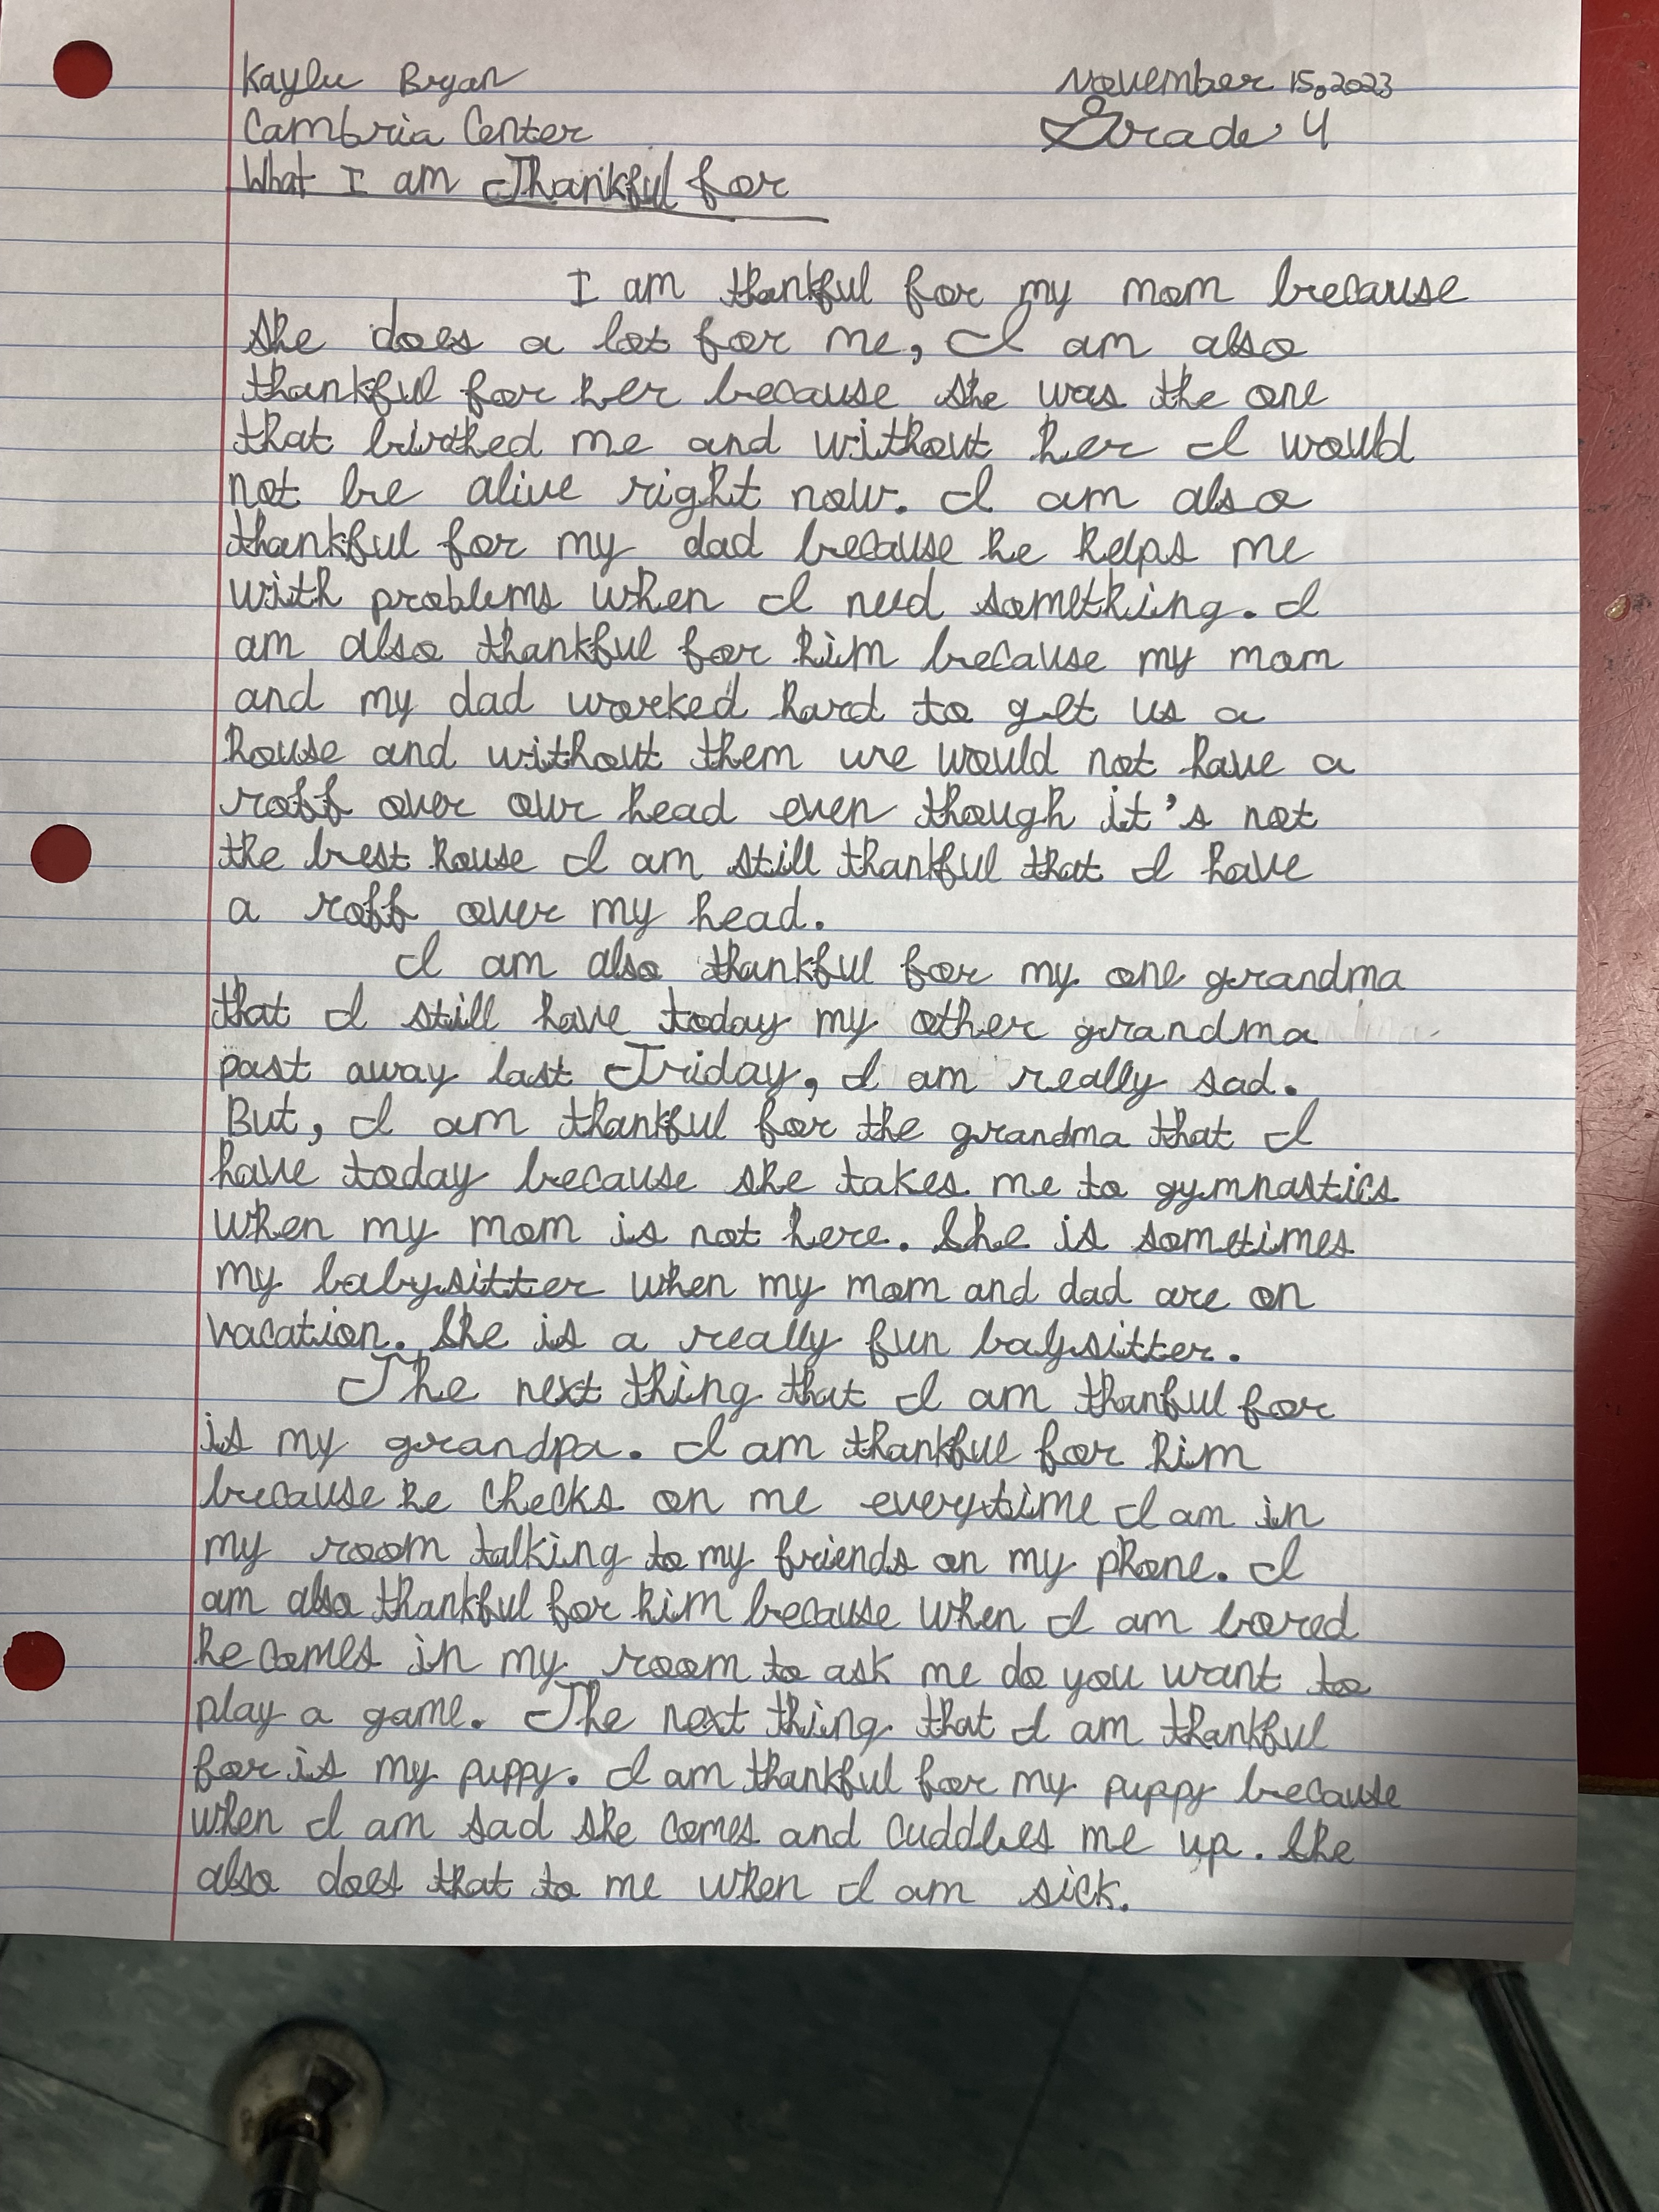 Kaylee Bryan November 15, 2023
Cambria Center Grade 4
What I am Thankful for
I am thankful for my mom because
she does a lot for me, I am also
thankful for her because she was the one
that birthed me and without her I would
not be alive right now. I am also
thankful for my dad because he helps me
with problems when I need something. I
am also thankful for him because my mom
and my dad worked hard to get us a
house and without them we would not have a
roff over our head even though it's not
the best house I am still thankful that I have
a roff over my head.
I am also thankful for my one grandma
that I still have today my other grandma
past away last Friday, I am really sad.
But, I am thankful for the grandma that I
have today because she takes me to gymnastics
when my mom is not here. She is sometimes
my babysitter when my mom and dad are on
vacation. She is a really fun babysitter.
The next thing that I am thanful for
is my grandpa. I am thankful for him
because he checks on me everytime I am in
my room talking to my friends on my phone. I
am also thankful for him because when I am bored
he comes in my room to ask me do you want to
play a game. The next thing that I am thankful
for is my puppy. I am thankful for my puppy because
when I am sad she comes and cuddles me up. She
also does that to me when I am sick.